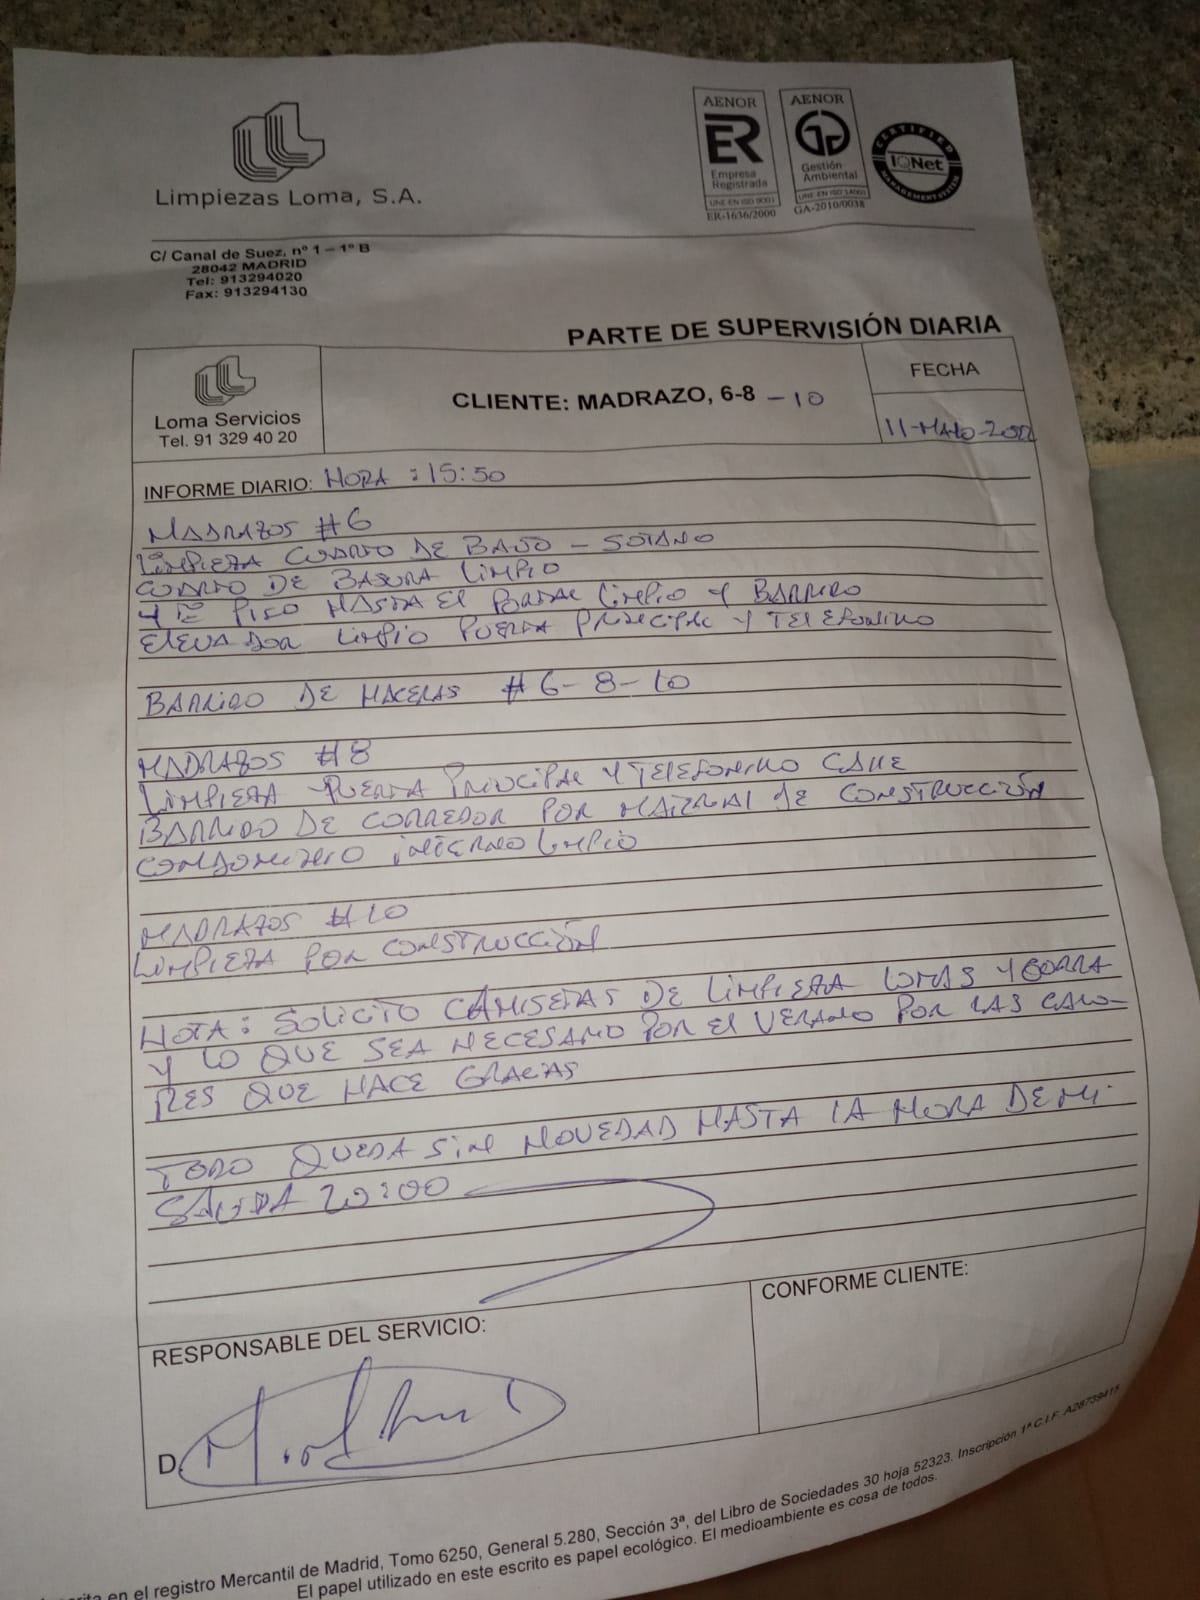 Limpiezas Loma, S.A.
AENOR
ER
Empresa
Registrada
UNE EN ISO 9001
ER-1636/2000
AENOR
Gestión
Ambiental
UNE EN ISO 14001
GA-2010/0038
CERTIFIED
IQNet
MANAGEMENT SYSTEM
C/ Canal de Suez, nº 1 – 1º B
28042 MADRID
Tel: 913294020
Fax: 913294130
PARTE DE SUPERVISIÓN DIARIA
Loma Servicios
Tel. 91 329 40 20
CLIENTE: MADRAZO, 6-8 - 10
FECHA
11-MAYO-2022
INFORME DIARIO: HORA : 15:50
MADRAZOS #6
LIMPIEZA CUARTO DE BAJO - SOTANO
CUARTO DE BASURA LIMPIO
PISO HASTA EL PORTAL LIMPIO Y BARRIDO
ELEVADOR LIMPIO PUERTA PRINCIPAL Y TELEFONILLO
BARRIDO DE MACERAS #6-8-10
MADRAZOS #8
LIMPIEZA PUERTA PRINCIPAL Y TELEFONILLO CALLE
BARRIDO DE CORREDOR POR MATERIAL DE CONSTRUCCIÓN
INTERNO LIMPIO
MADRAZOS #10
LIMPIEZA POR CONSTRUCCIÓN
NOTA: SOLICITO CAMISETAS DE LIMPIEZA LOMAS Y GORRA
Y LO QUE SEA NECESARIO POR EL VERANO POR LAS CALO-
RES QUE HACE GRACIAS
TODO QUEDA SIN NOVEDAD HASTA LA HORA DE MI
SALIDA 20:00
RESPONSABLE DEL SERVICIO:
CONFORME CLIENTE:
D.
en el registro Mercantil de Madrid, Tomo 6250, General 5.280, Sección 3ª, del Libro de Sociedades 30 hoja 52323. Inscripción 1ª C.I.F. A28739415
El papel utilizado en este escrito es papel ecológico. El medioambiente es cosa de todos.